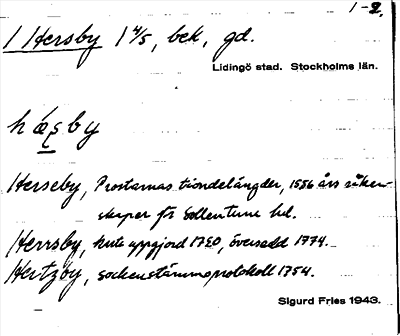 1-2.
1 Hersby 1 4/5, bek, gd.
Lidingö stad. Stockholms län.
hæsby
Herseby, Prostarnas tiondelängder, 1556 års räken-
skaper för Sollentuna hd.
Herrsby, karta uppgjord 1720, översedd 1774.
Hertzby, sockenstämmoprotokoll 1754.
Sigurd Fries 1943.